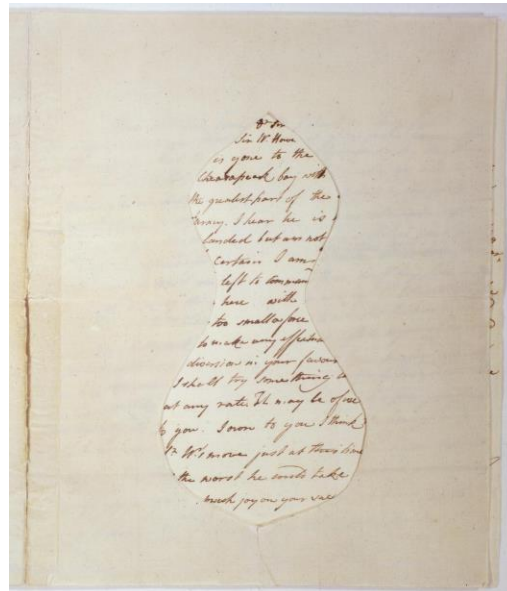 Dr Sir
Sir W. Howe
is gone to the
Chesapeak bay with
the greatest part of the
Army. I hear he is
landed but am not
certain I am
left to command
here with
too small a force
to make any effectual
diversion in your favour
I shall try something
at any rate. It may be of use
to you. I own to you I think
Sr Ws move just at this time
the worst he could take
much joy on your